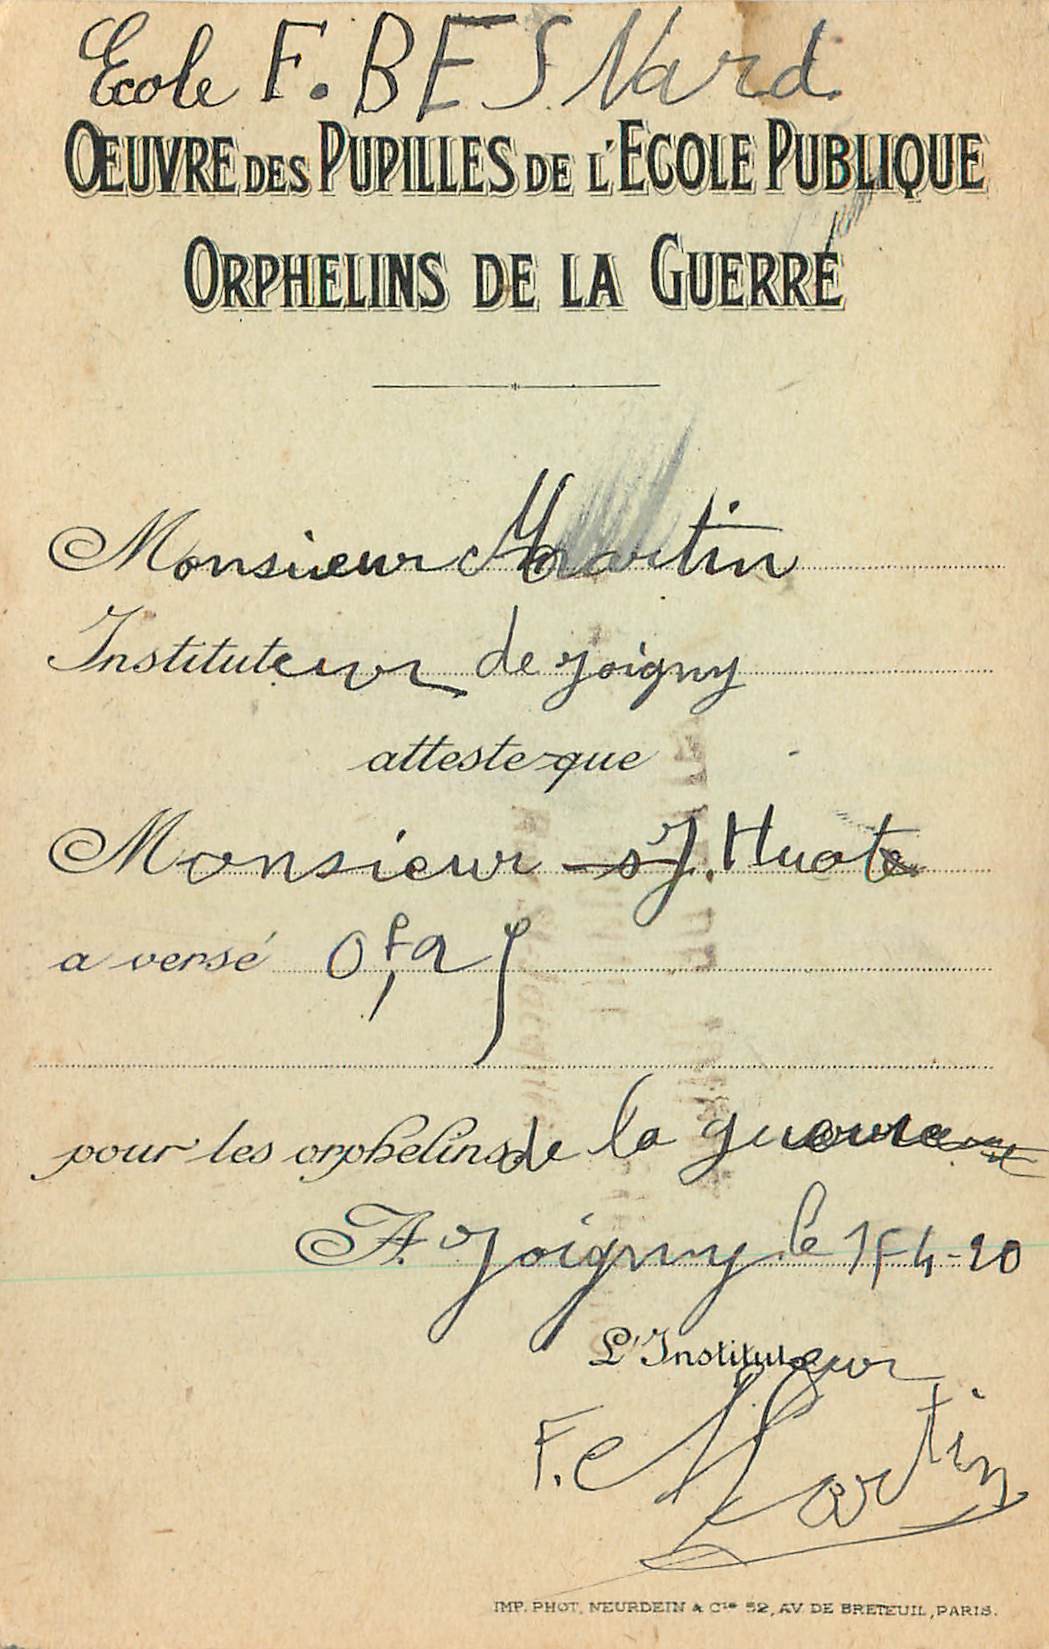 Ecole F. BESNard
OEUVRE DES PUPILLES DE L'ECOLE PUBLIQUE
ORPHELINS DE LA GUERRE
Monsieur Martin
Instituteur de Joigny
atteste que
Monsieur J. Huot
a versé 0f,25
pour les orphelins de la guerre
A Joigny le 15-4-20
L'Instituteur
F. Martin
IMP. PHOT. NEURDEIN & Cie 52, AV. DE BRETEUIL, PARIS.